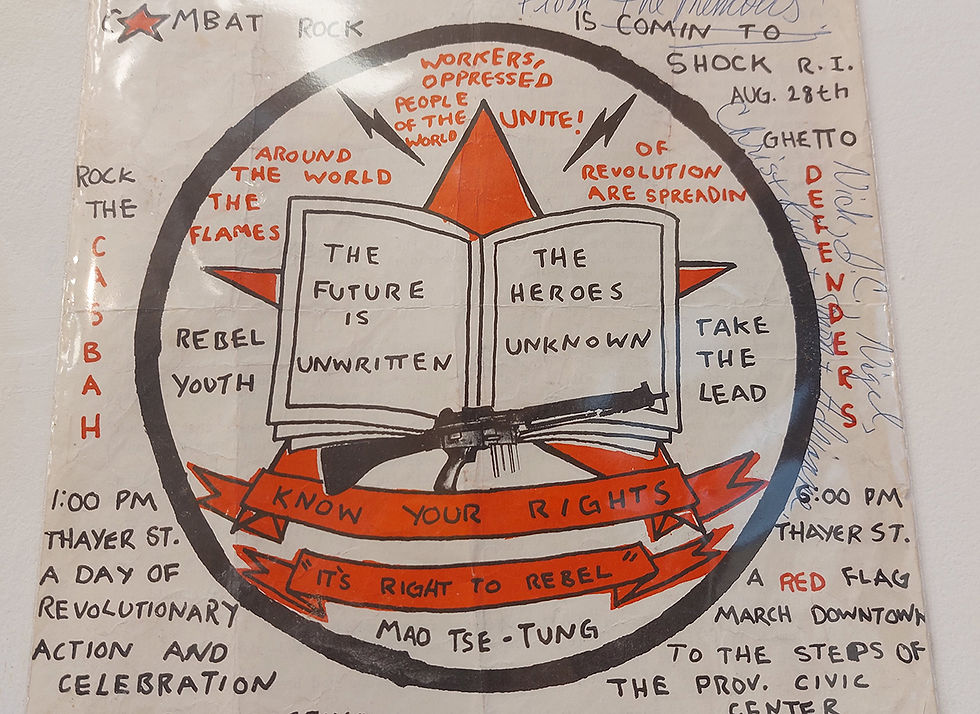 C★MBAT ROCK
From the Memoirs
IS COMIN TO
SHOCK R.I.
AUG. 28th
ROCK
THE
CASBAH
GHETTO
DEFENDERS
WORKERS,
OPPRESSED
PEOPLE
OF THE
WORLD
UNITE!
AROUND
THE WORLD
THE
FLAMES
OF
REVOLUTION
ARE SPREADIN
THE
FUTURE
IS
UNWRITTEN
THE
HEROES
UNKNOWN
REBEL
YOUTH
TAKE
THE
LEAD
KNOW YOUR RIGHTS
"IT'S RIGHT TO REBEL"
MAO TSE-TUNG
1:00 PM
THAYER ST.
A DAY OF
REVOLUTIONARY
ACTION AND
CELEBRATION
6:00 PM
THAYER ST.
A RED FLAG
MARCH DOWNTOWN
TO THE STEPS OF
THE PROV. CIVIC
CENTER